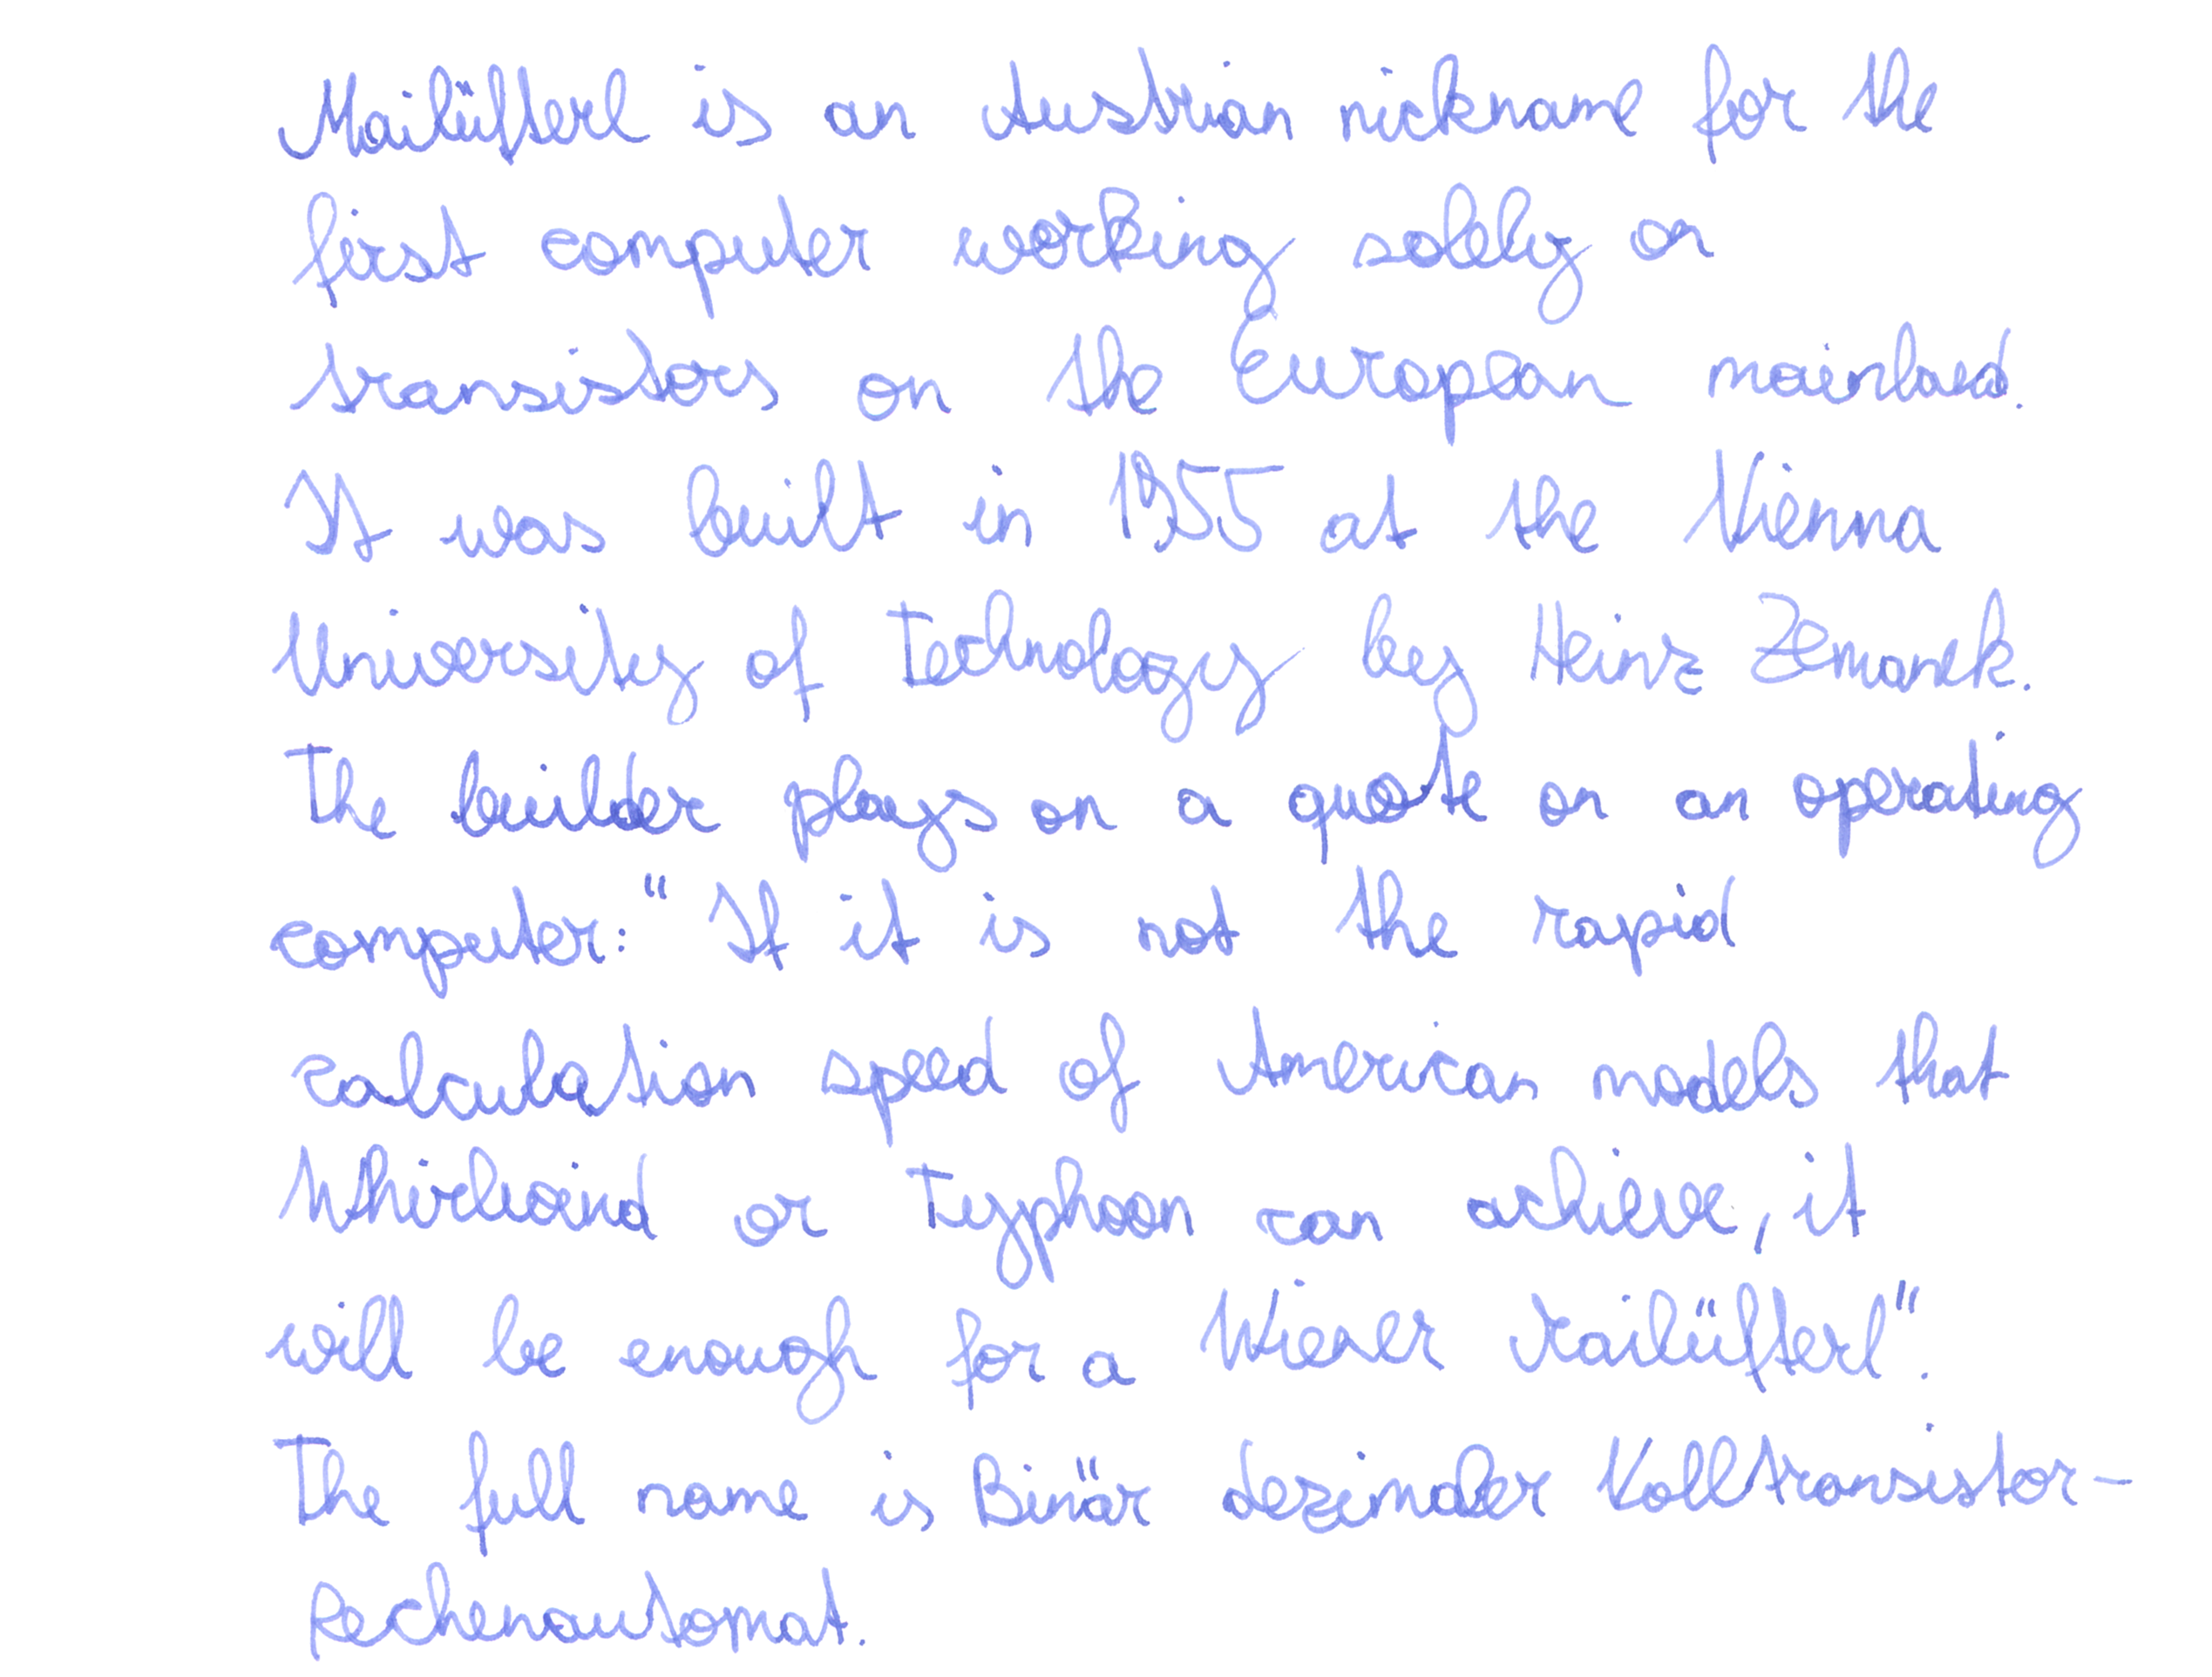 Mailüfterl is an Austrian nickname for the
first computer working solely on
transistors on the European mainland.
It was built in 1955 at the Vienna
University of Technology by Heinz Zemanek.
The builder plays on a quote on an operating
computer: "If it is not the rapid
calculation speed of American models that
Whirlwind or Typhoon can achieve, it
will be enough for a Wiener Mailüfterl".
The full name is Binär dezimaler Volltransistor-
Rechenautomat.